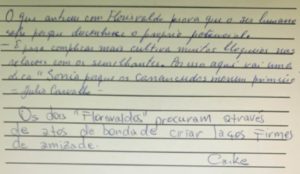 O que anticou com Florisvaldo prova que o ser humano
sofre porque desconhece o próprio potencial.
- E para complicar mais cultiva muitos bloqueios nas
relações com os semelhantes. Por isso aqui vai uma
dica "Sorria porque os carrancudos morrem primeiro
- Julio Carvalho -
Os dois "Floriwaldos" procuram através
de atos de bondade criar laços firmes
de amizade.
Caike